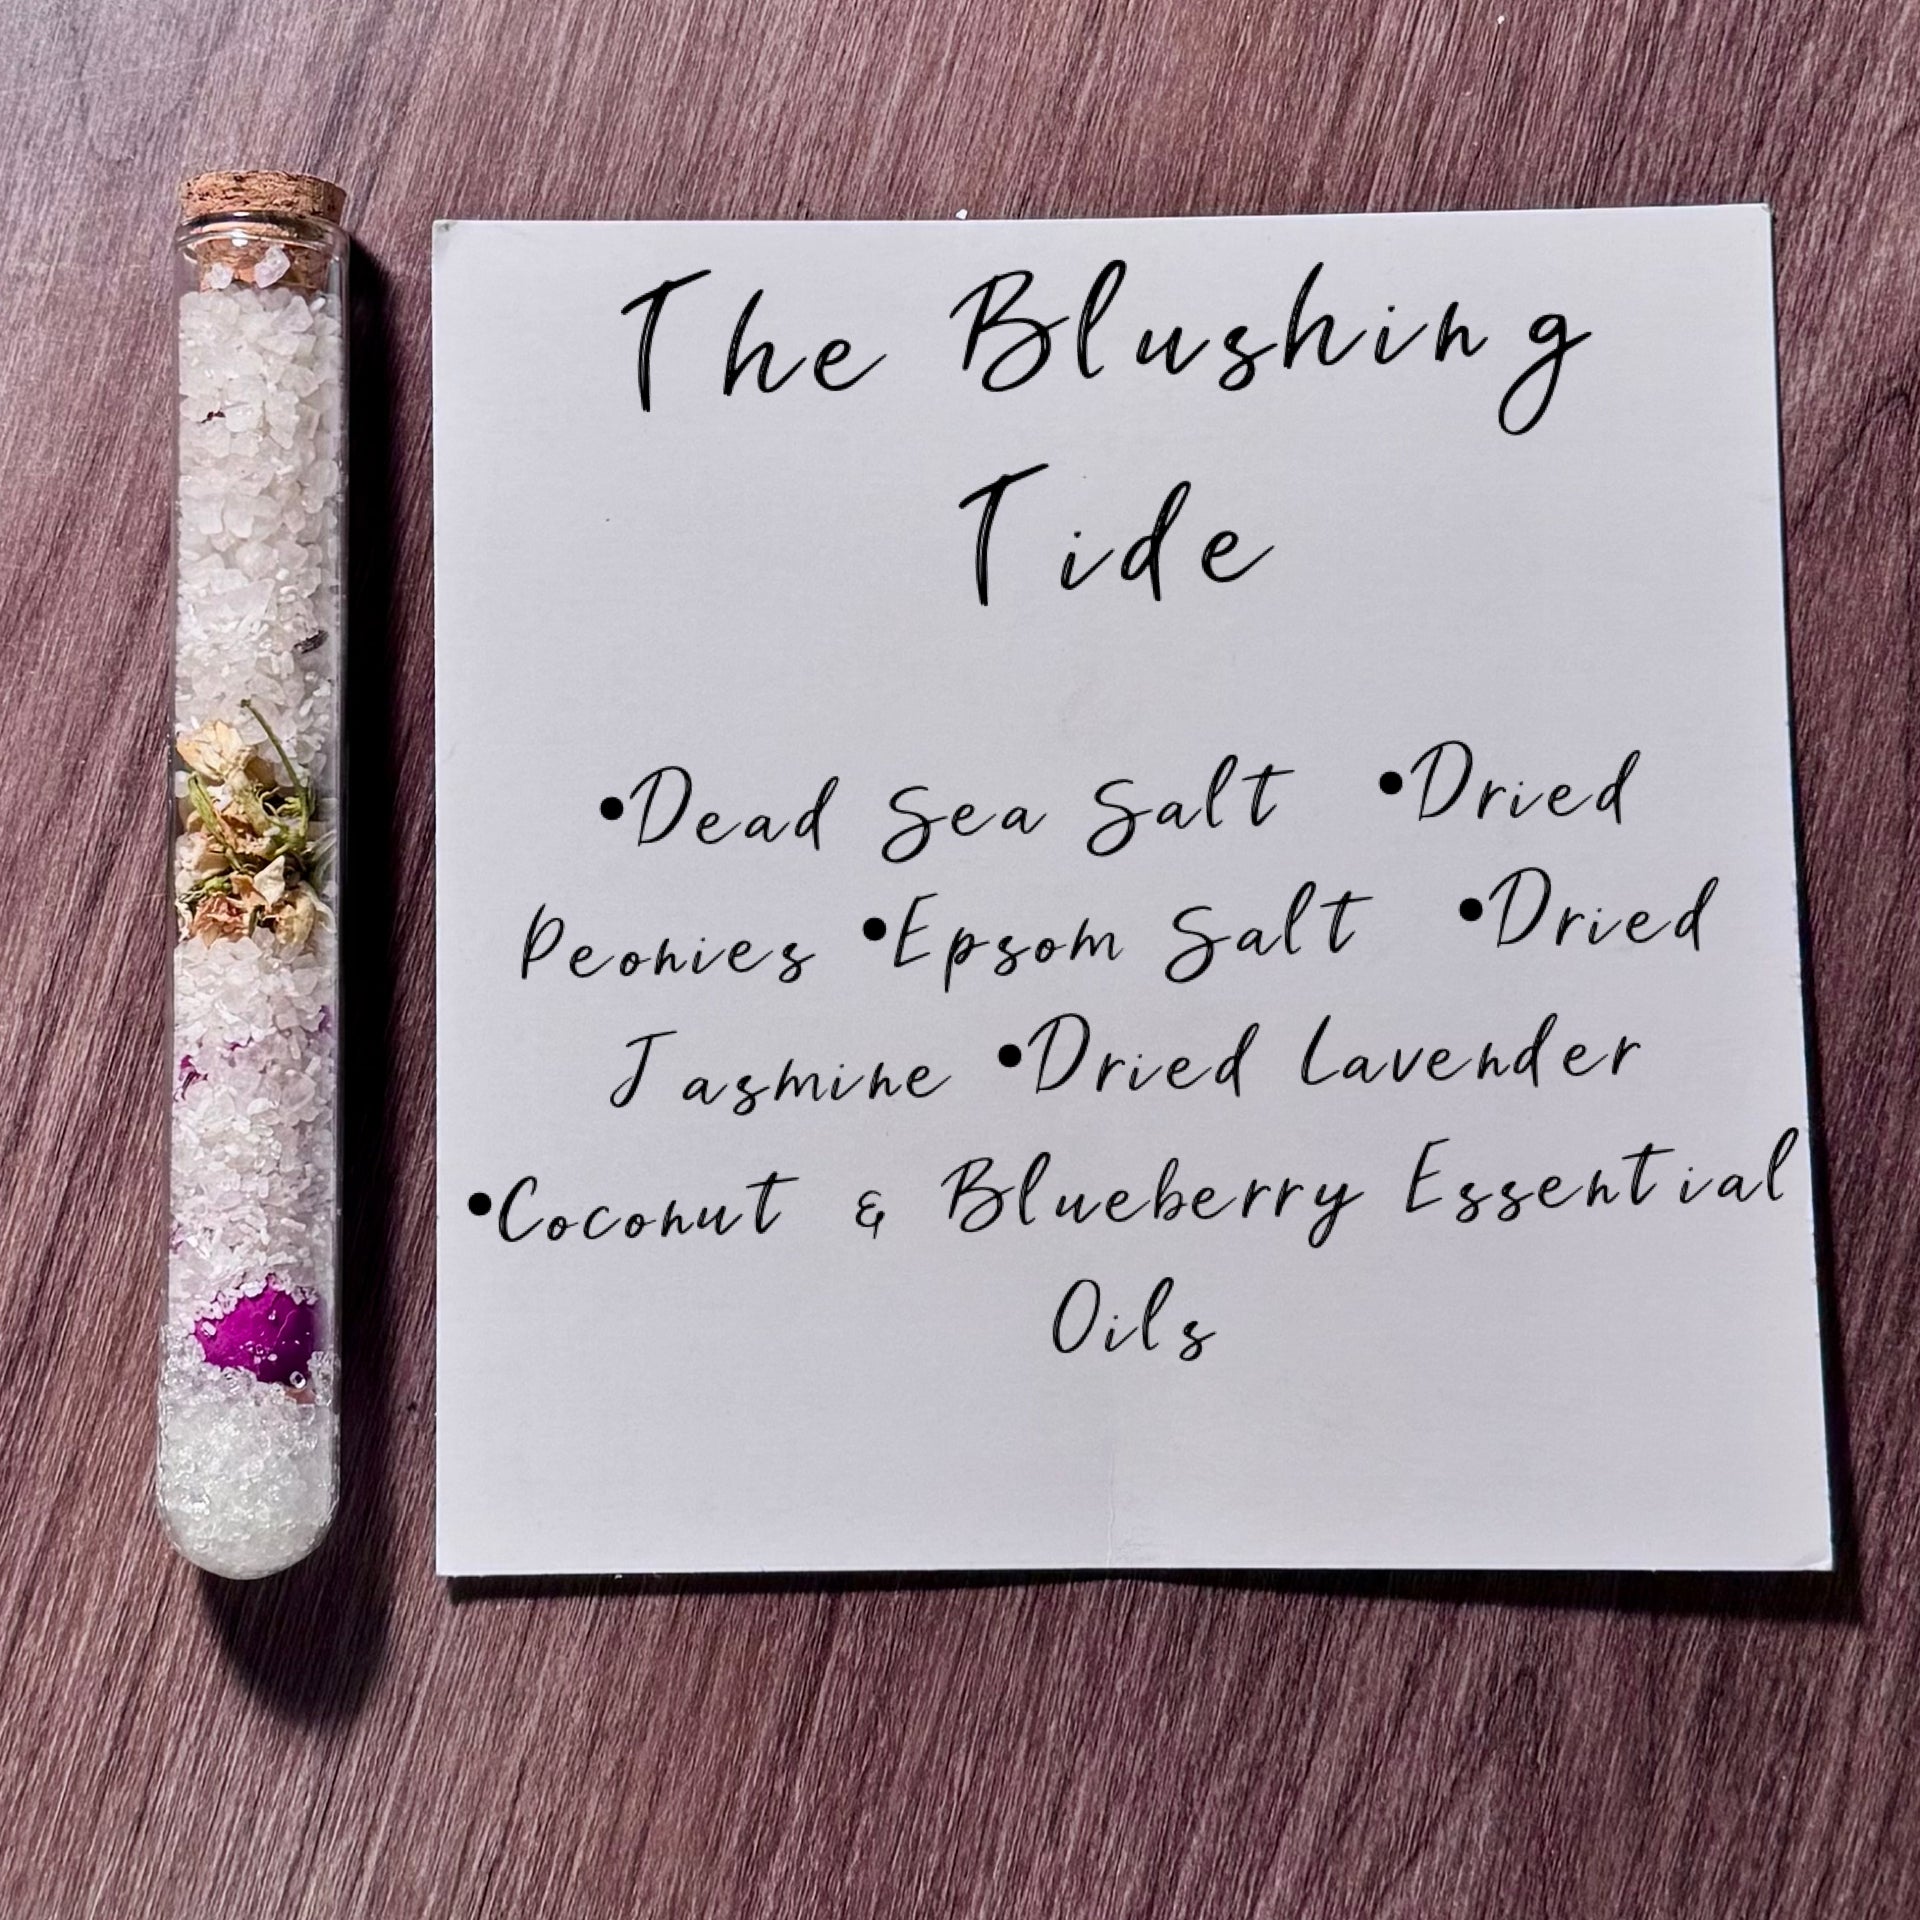 The Blushing
Tide
•Dead Sea Salt •Dried
Peonies •Epsom Salt •Dried
Jasmine •Dried Lavender
•Coconut & Blueberry Essential
Oils